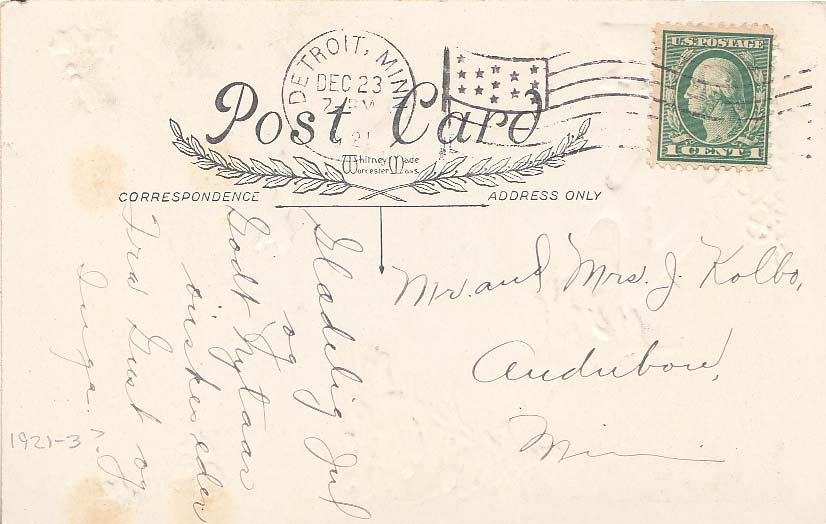 U.S. POSTAGE
1 CENT 1
DETROIT, MINN
DEC 23
7 PM
21
Post Card
Whitney Made
Worcester Mass.
CORRESPONDENCE
ADDRESS ONLY
Gladelig Jul
og
Godt Nytaar
önskes eder
Fra Gust og
Inga. J.
Mr. and Mrs. J. Kolbo,
Audubon,
Minn
1921-3